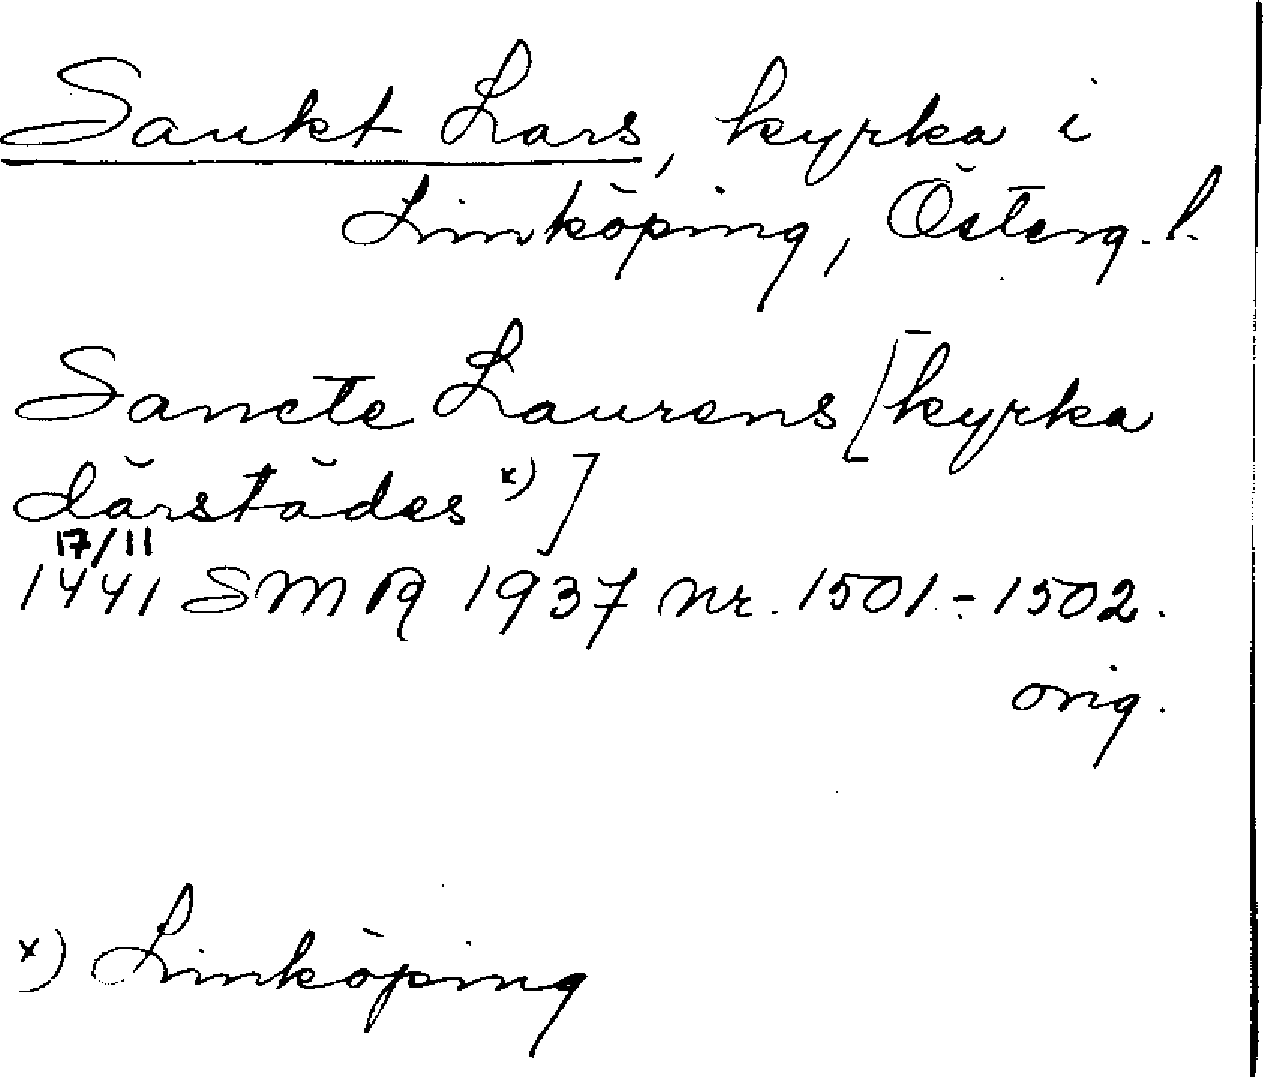 Sankt Lars, kyrka i
Linköping, Österg. l.
Sancte Laurens [kyrka
därstädes x)]
17/11
1441 SMR 1937 nr. 1501-1502.
orig.
x) Linköping